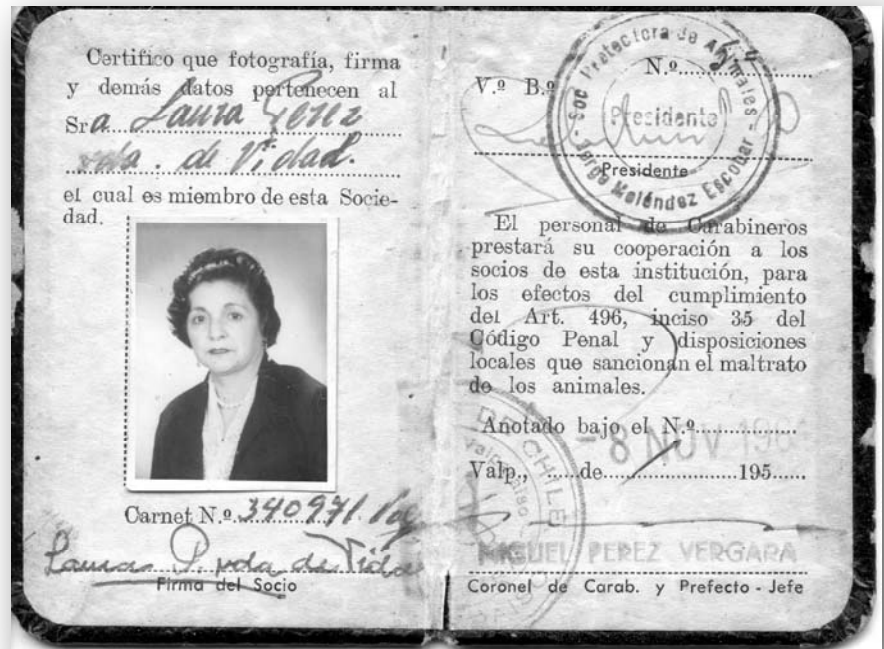 Certifico que fotografía, firma
y demás datos pertenecen al
Sra. Laura Pérez
vda. de Vidal.
el cual es miembro de esta Socie-
dad.
Carnet N.º 340971
Laura P. vda de Vidal
Firma del Socio
N.º
V.º B.º
Soc. Protectora de Animales
Presidente
Jorge Meléndez Escobar
Presidente
El personal de Carabineros
prestará su cooperación a los
socios de esta institución, para
los efectos del cumplimiento
del Art. 496, inciso 35 del
Código Penal y disposiciones
locales que sancionan el maltrato
de los animales.
Anotado bajo el N.º
-8 NOV
Valp., de 195
DE CHILE
Valparaiso
MIGUEL PEREZ VERGARA
Coronel de Carab. y Prefecto-Jefe